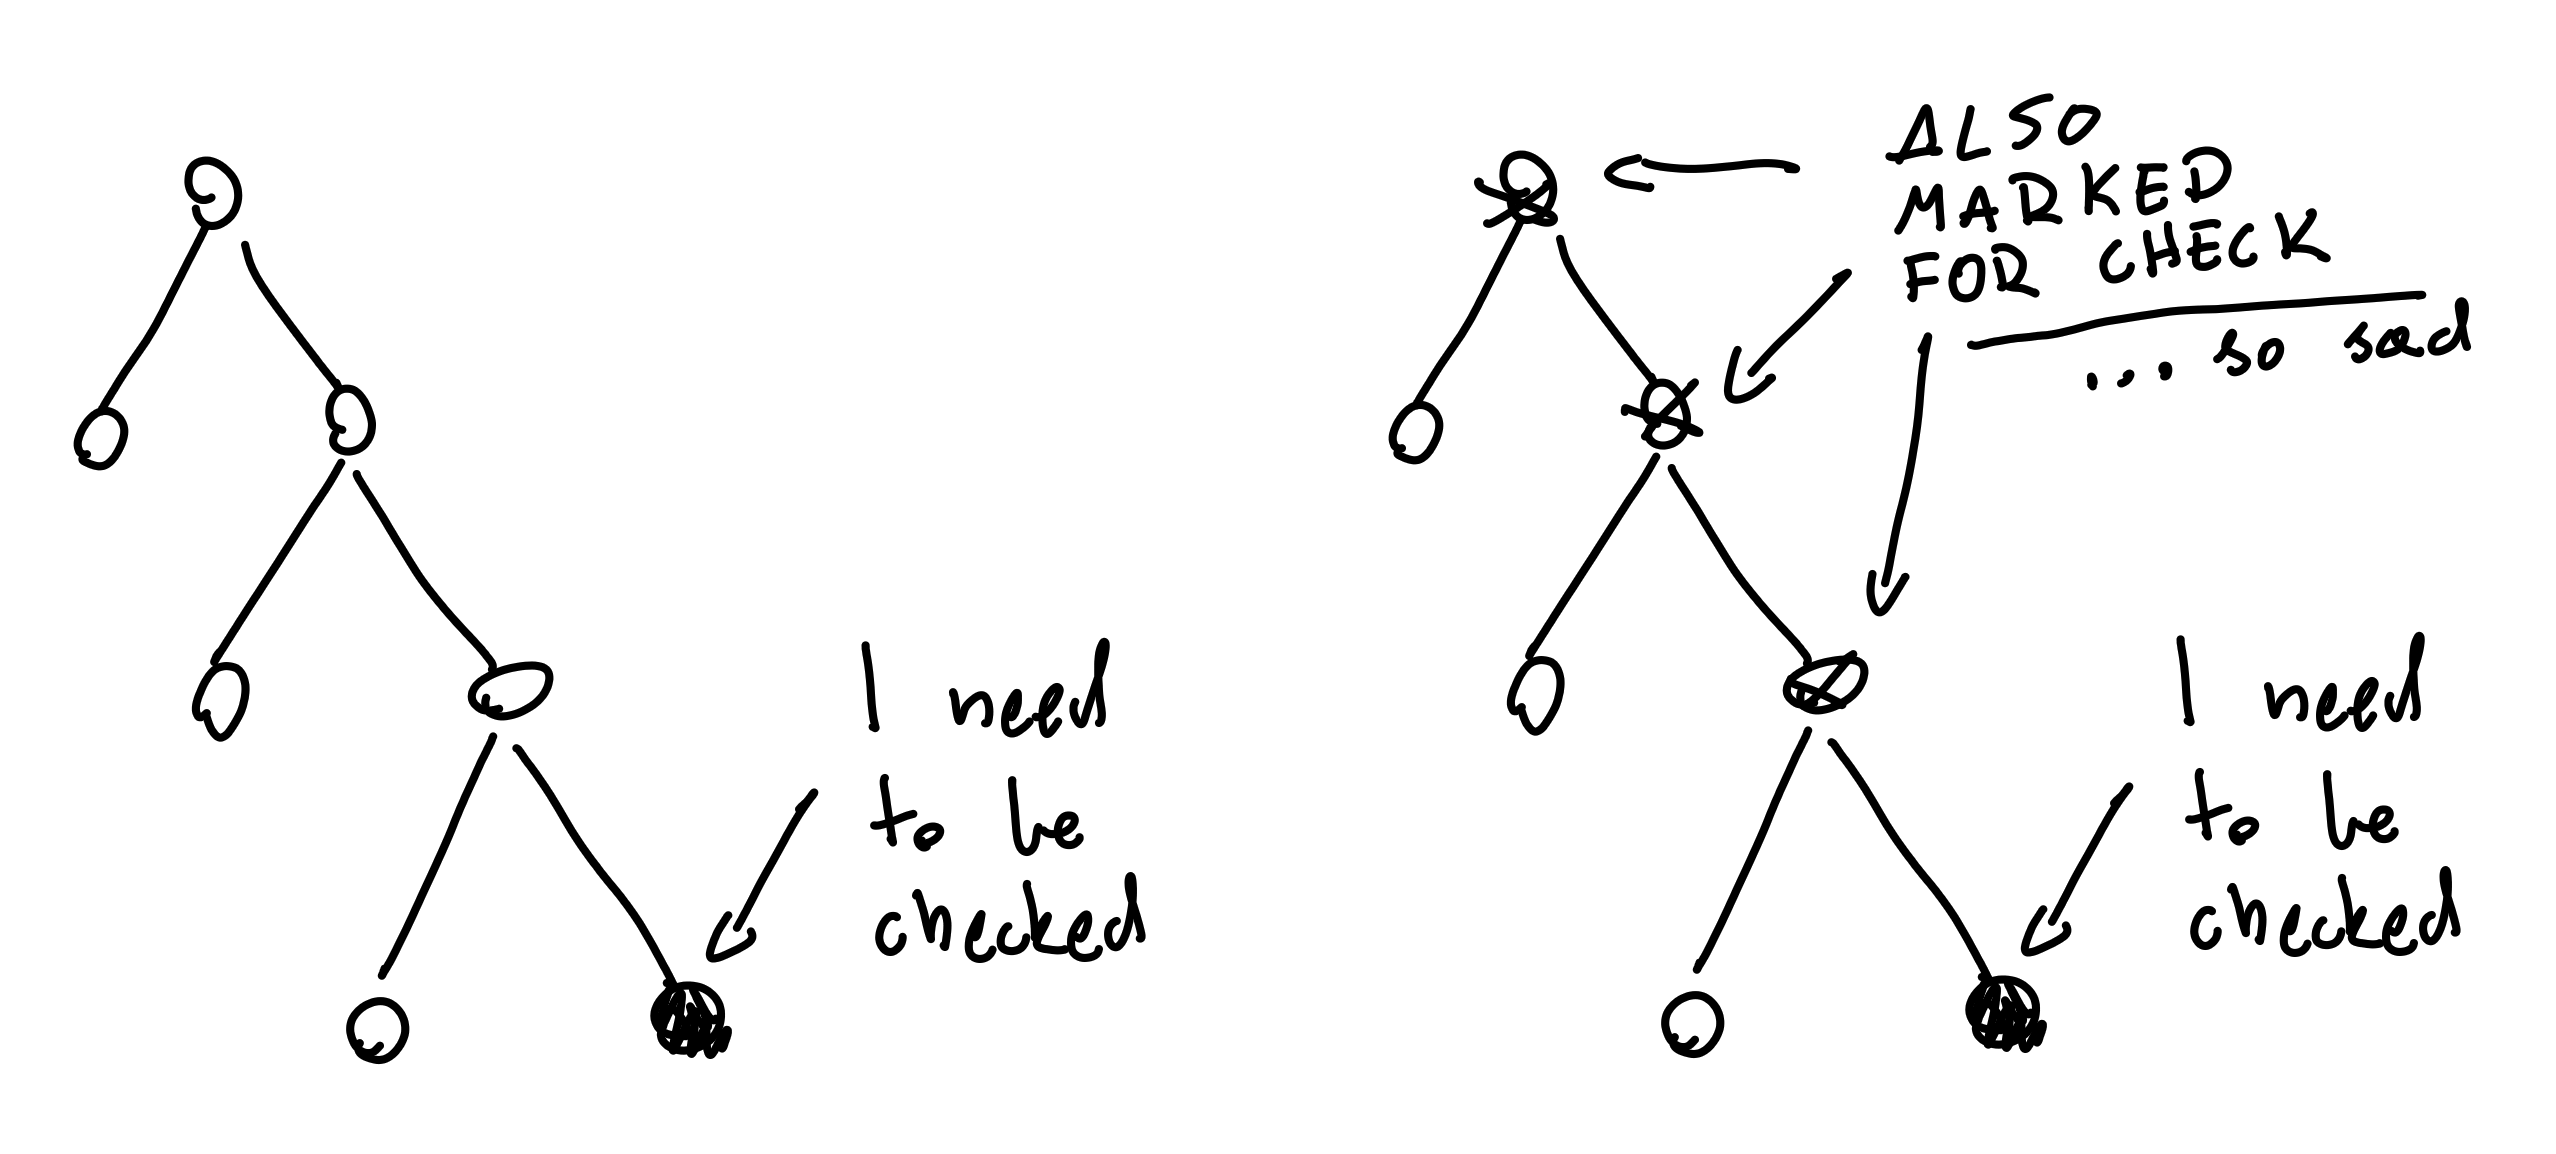 I need
to be
checked
ALSO
MARKED
FOR CHECK
... so sad
I need
to be
checked